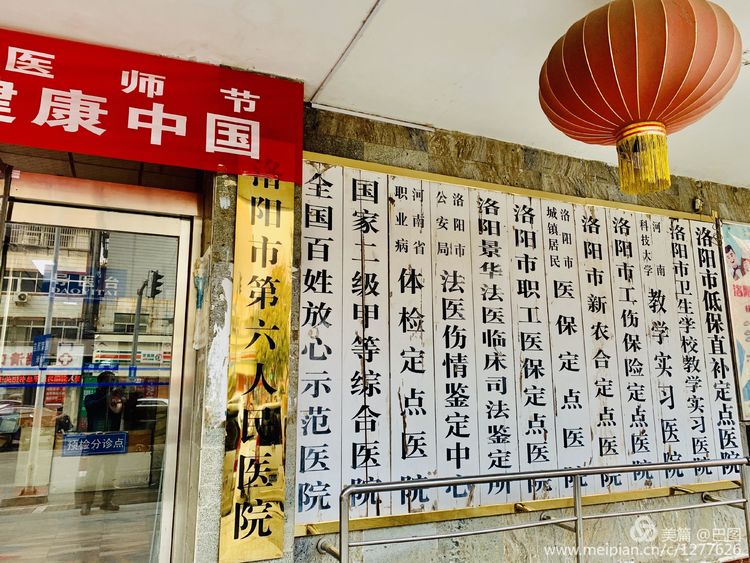 医师节
健康中国
洛阳市第六人民医院
全国百姓放心示范医院
国家二级甲等综合医院
河南省职业病体检定点医院
洛阳市公安局法医伤情鉴定中心
洛阳景华法医临床司法鉴定所
洛阳市职工医保定点医院
洛阳市城镇居民医保定点医院
洛阳市新农合定点医院
洛阳市工伤保险定点医院
河南科技大学教学实习医院
洛阳市卫生学校教学实习医院
洛阳市低保直补定点医院
预检分诊点
美篇 @巴图
www.meipian.cn/c/1277626